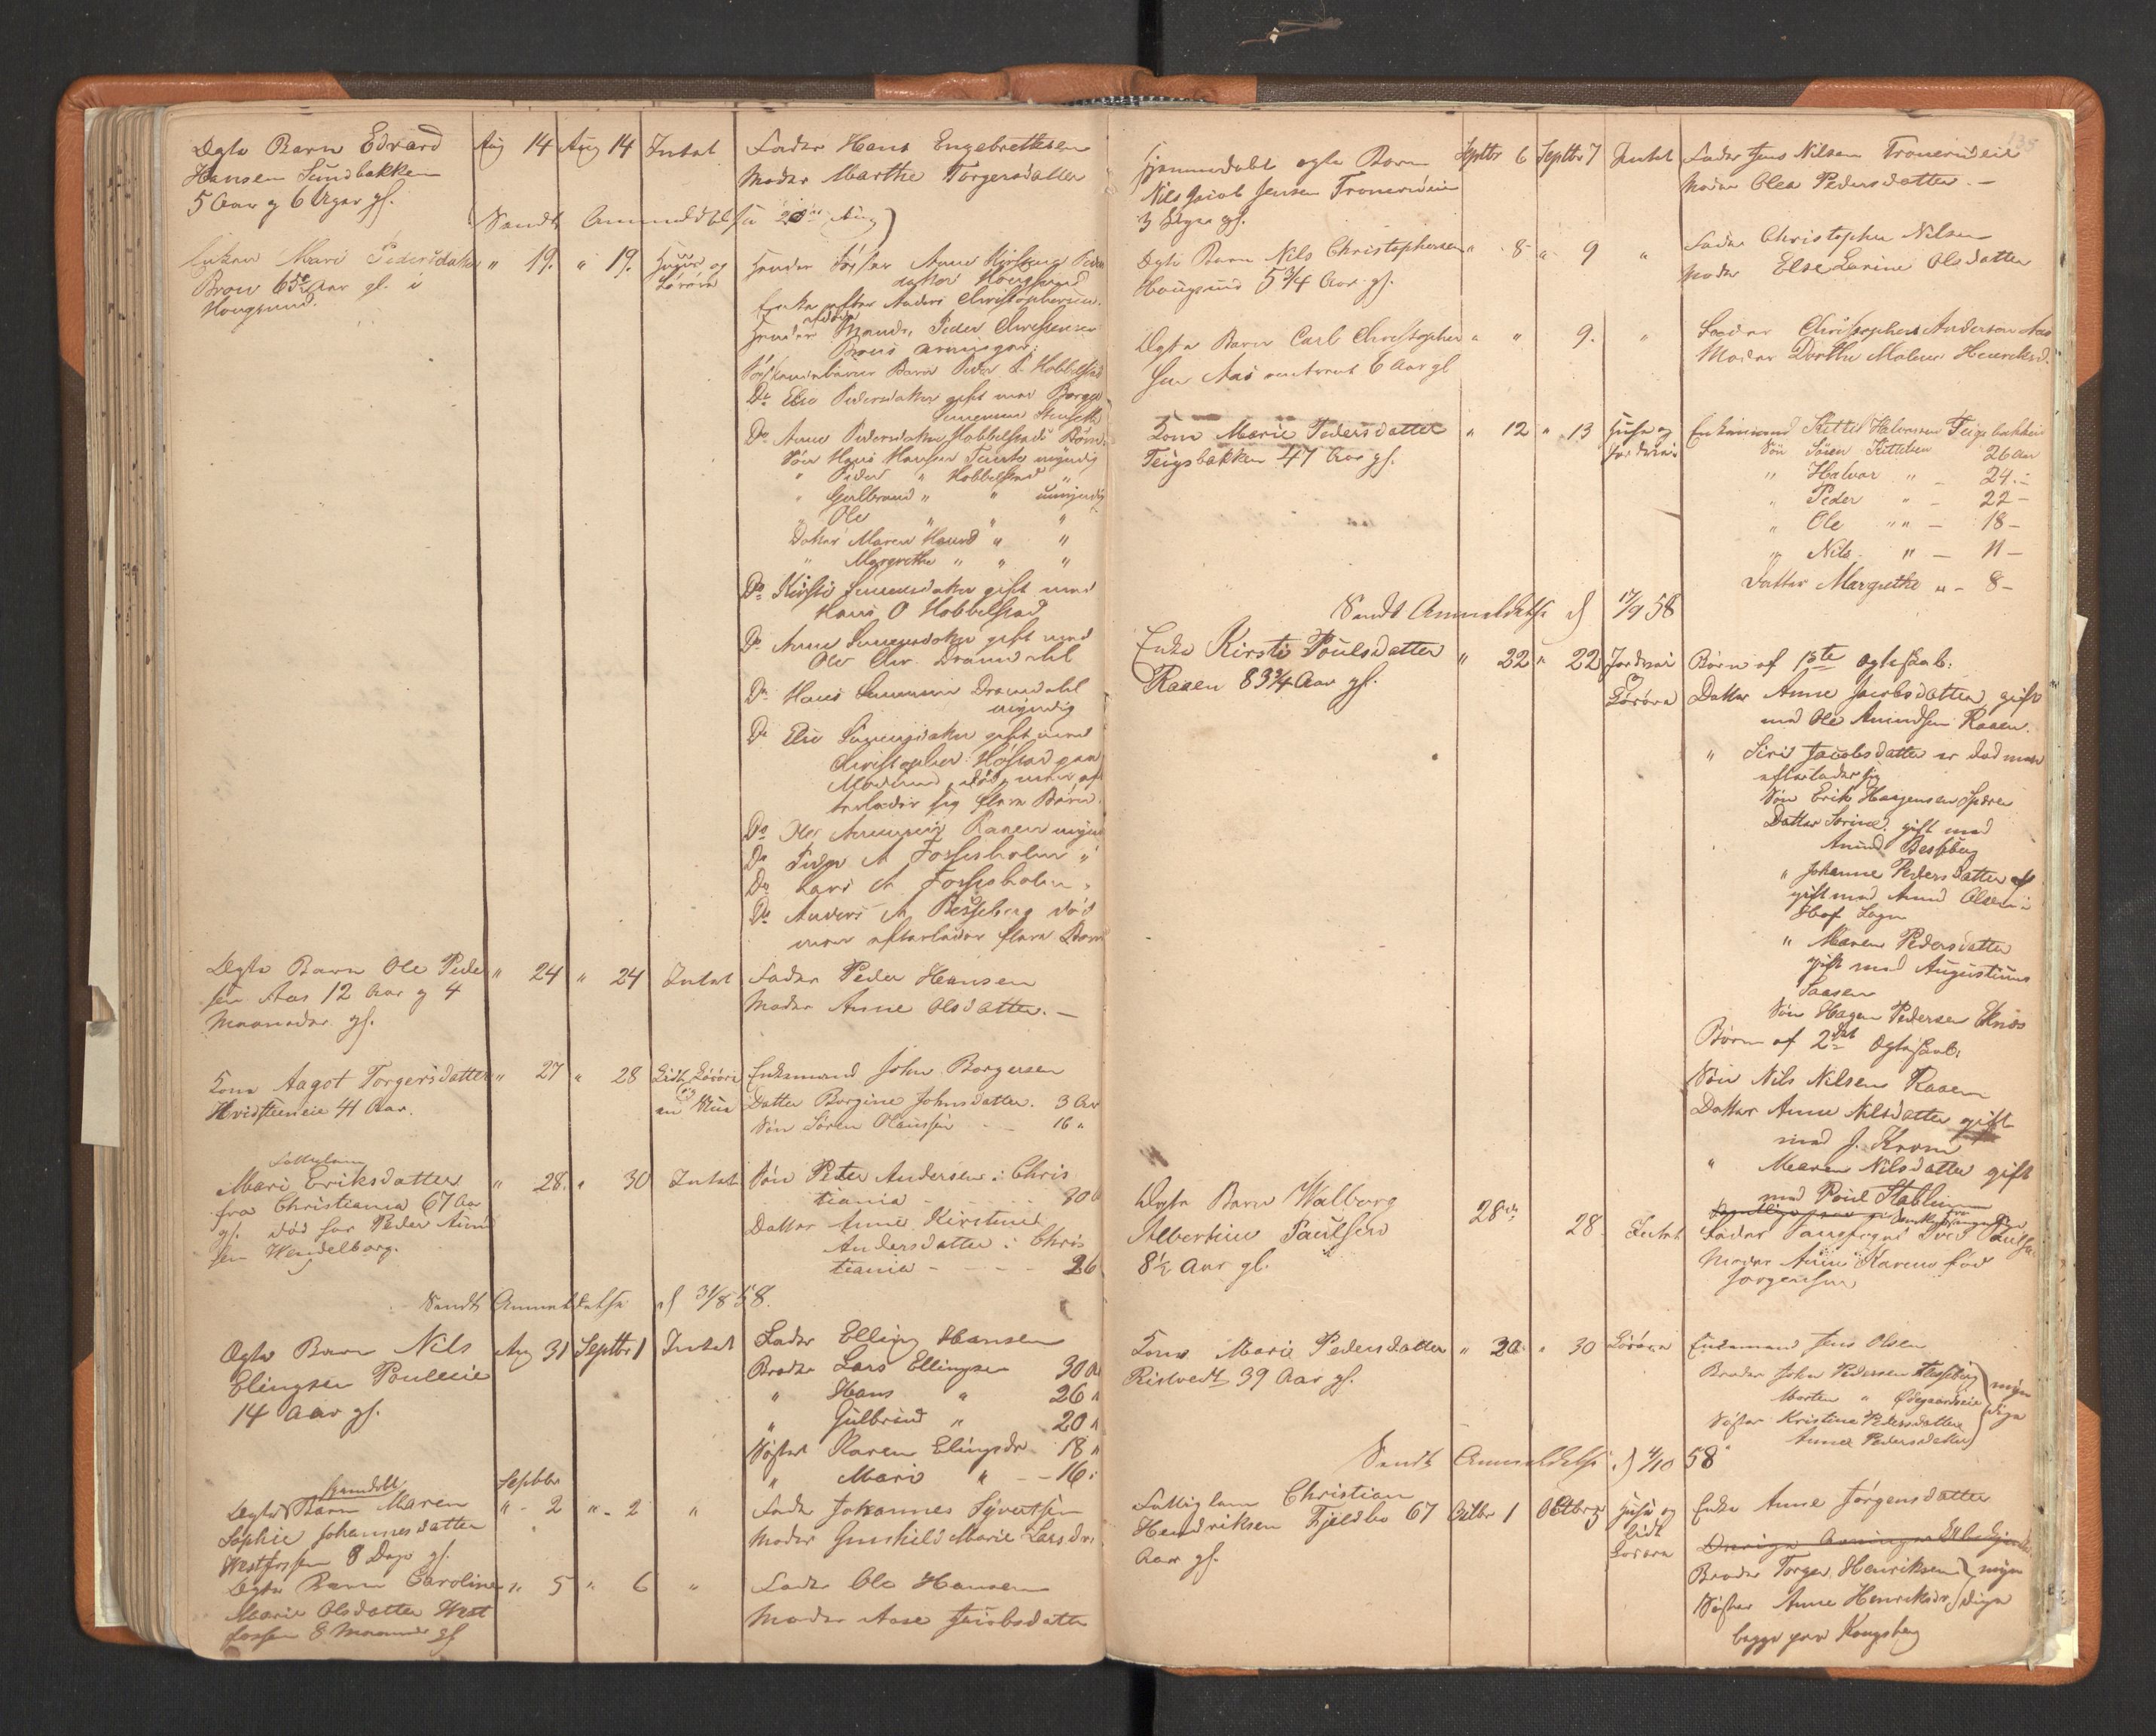 Ægte Barn Edvard
Hansen Sundbakken
5 Aar og 6 Uger gl.
Aug 14
Aug 14
Intet
Fader Hans Engebrethsen
Moder Marthe Torgersdatter
Sendt Anmeldelse 20de Aug)
Enken Mari Pedersdatter
Broen Aar gl. i
Hougsund.
" 19.
" 19.
og
Løsøre
Hendes Søster Anne Kirstine Peders
datter Hougsund
Enke efter Anders Christophersen
Hendes afdøde Mands, Peder Christensen
Broens arvinger:
Søskendebarn Barn Peder P. Hobbelstad
Do Else Pedersdatter gift med Borger
Do Anne Pedersdatter Hobbelstads Børn:
Søn Hans Hansen myndig
" Peder " Hobbelstad "
" Gulbrand " " umyndig
" Ole " " "
Datter Maren Hansd " "
" Margrethe " " "
Do Kirsti Simensdatter gift med
Hans O Hobbelstad
Do Anne Simensdatter gift med
Ole Chr. Dramdahl
Do Hans Simensen Dramdahl
myndig
Do Else Simensdatter gift med
Christopher Hostad paa
Modum, død, men ef
terlader sig flere Børn.
Do Ole Raaen mynd
Do Peder A Fossesholm "
Do Lars A. Fossesholm "
Do Anders A Besseberg død
men efterlader flere Børn
Ægte Barn Ole Peder
sen Aas 12 Aar og 4
Maaneder gl.
" 24
" 24
Intet
Fader Peder Hansen
Moder Anne Olsdatter. —
Kone Aagot Torgersdatter
Hvidsteeneie 41 Aar.
" 27
" 28
Lidt Løsøre
og en Stue
Enkemand John Borgersen
Datter Borgine Johnsdatter. 3 Aar
Søn Søren Olaussen - - 16 "
Fattiglem
Mari Eriksdatter
fra Christiania 67 Aar
gl. død hos Peder Amund
sen Wendelborg.
" 28.
" 30
Intet
Søn Peter Andersen i Chris
tiania - - - 30
Datter Anne Kirstine
Andersdatter i Chris
tiania - - - - 26
Sendt Anmeldelse d 31/8 58.
Ægte Barn Nils
Elingsen Pouleeie
14 Aar gl.
Aug 31
Septbr 1
Intet
Fader Elling Hansen
Broder Lars Ellingsen 30 Aar
" Hans " 26 "
" Gulbrand " 20 "
Søster Karen Elingsdr 18 "
" Mari " - - 16 "
Ægte Barn Maren
Sophie Johannesdatter
Westfossen 8 Dage gl.
Septbr
" - 2
" - 2
"
Fader Johannes Syvertsen
Moder Gunhild Marie Larsdr.
Ægte Barn Caroline
Marie Olsdatter West
fossen 8 Maaneder gl
" 5
" 6
"
Fader Ole Hansen
Moder Aase Jacobsdatter
Hjemmedøbt ægte Barn
Nils Jacob Jensen Tronerudeie
3 Uger gl.
Septbr 6
Septbr 7
Intet
Fader Jens Nilsen Tronerudeie
Moder Olea Pedersdatter. —
Ægte Barn Nils Christophersen
Hougsund 5 3/4 Aar gl.
" 8
" 9
"
Fader Christopher Nilsen
Moder Else Larine Olsdatter
Ægte Barn Carl Christopher
sen Aas omtrent 6 Aar gl
" "
9.
"
Fader Christopher Andersen Aas
Moder Dorthe Malene Henriksd.
Kone Marie Pedersdatter
Teigsbakken 47 Aar gl.
" 12
" 13
Huse og
Jordvei
Enkemand Kittil Halvorsen Teigsbakken
Søn Søren Kittilsen 26 Aar
" Halvor " — 24 —
" Peder " — 22 —
" Ole " " — 18 —
" Nils " — 11 —
Datter Margrethe " — 8 —
Sendt Anmeldelse d 17/9 58
Enke Kirsti Poulsdatter
Raaen 83 3/4 Aar gl.
" 22
" 22
Jordvei
og
Løsøre
Børn af 1ste Ægteskab:
Datter Anne Jacobsdatter, gift
med Ole Amundsen Raaen.
" Siri Jacobsdatter er død men
efterlader sig
Søn Erik Haagensen
Datter gift med
Amund Besseberg
" Johanne Pedersdatter
gift med Amund Olsen i
Hof Sogn
" Maren Pedersdatter
gift med Augustinus
Saasen
Søn Hagen Pedersen
Børn af 2det Ægteskab:
Søn Nils Nilsen Raaen
Datter Anne Nilsdatter gift
med J. Krom
" Maren Nilsdatter gift
med Poul Stablin
Ægte Barn Walborg
Albertine Paulsen
8 1/2 Aar gl.
28de
28
Intet
Fader Paulsen
Moder Anne Karen født
Jørgensen
Kone Marie Pedersdatter
Ristvedt 39 Aar gl.
" 20
" 30
Løsøre
Enkemand Jens Olsen
Broder John Pedersen
Morten " Ødegaardseie
Søster Kristine Pedersdatter
Anne Pedersdatter
myn
dige
Sendt Anmeldelse d 4/10 58
Fattiglem Christian
Hendriksen Fjeldbo 67
Aar gl.
Octbr 1
Octbr 3
Huse og
Lidt
Løsøre
Enke Anne Jørgensdatter
Broder Torger Henriksen
Søster Anne Henriksdr
myn
dige
begge paa Kongsberg